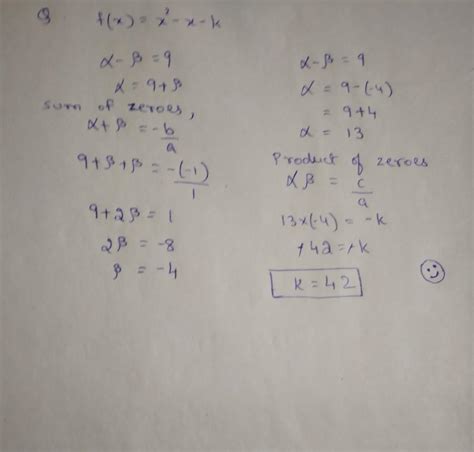 Q f(x) = x² - x - k
α - β = 9
α = 9 + β
Sum of zeroes,
α + β = -b/a
9 + β + β = -(-1)/1
9 + 2β = 1
2β = -8
β = -4
α - β = 9
α = 9 - (-4)
= 9 + 4
α = 13
Product of zeroes
αβ = c/a
13 × (-4) = -k
-42 = -k
k = 42